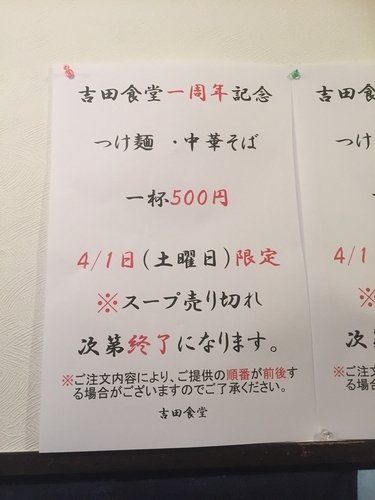 吉田食堂一周年記念
つけ麺 ・中華そば
一杯500円
4/1日(土曜日)限定
※スープ売り切れ
次第終了になります。
※ご注文内容により、ご提供の順番が前後す
る場合がございますのでご了承ください。
吉田食堂
吉田食
つけ
4/1
※
次第
※ご注文
る場合